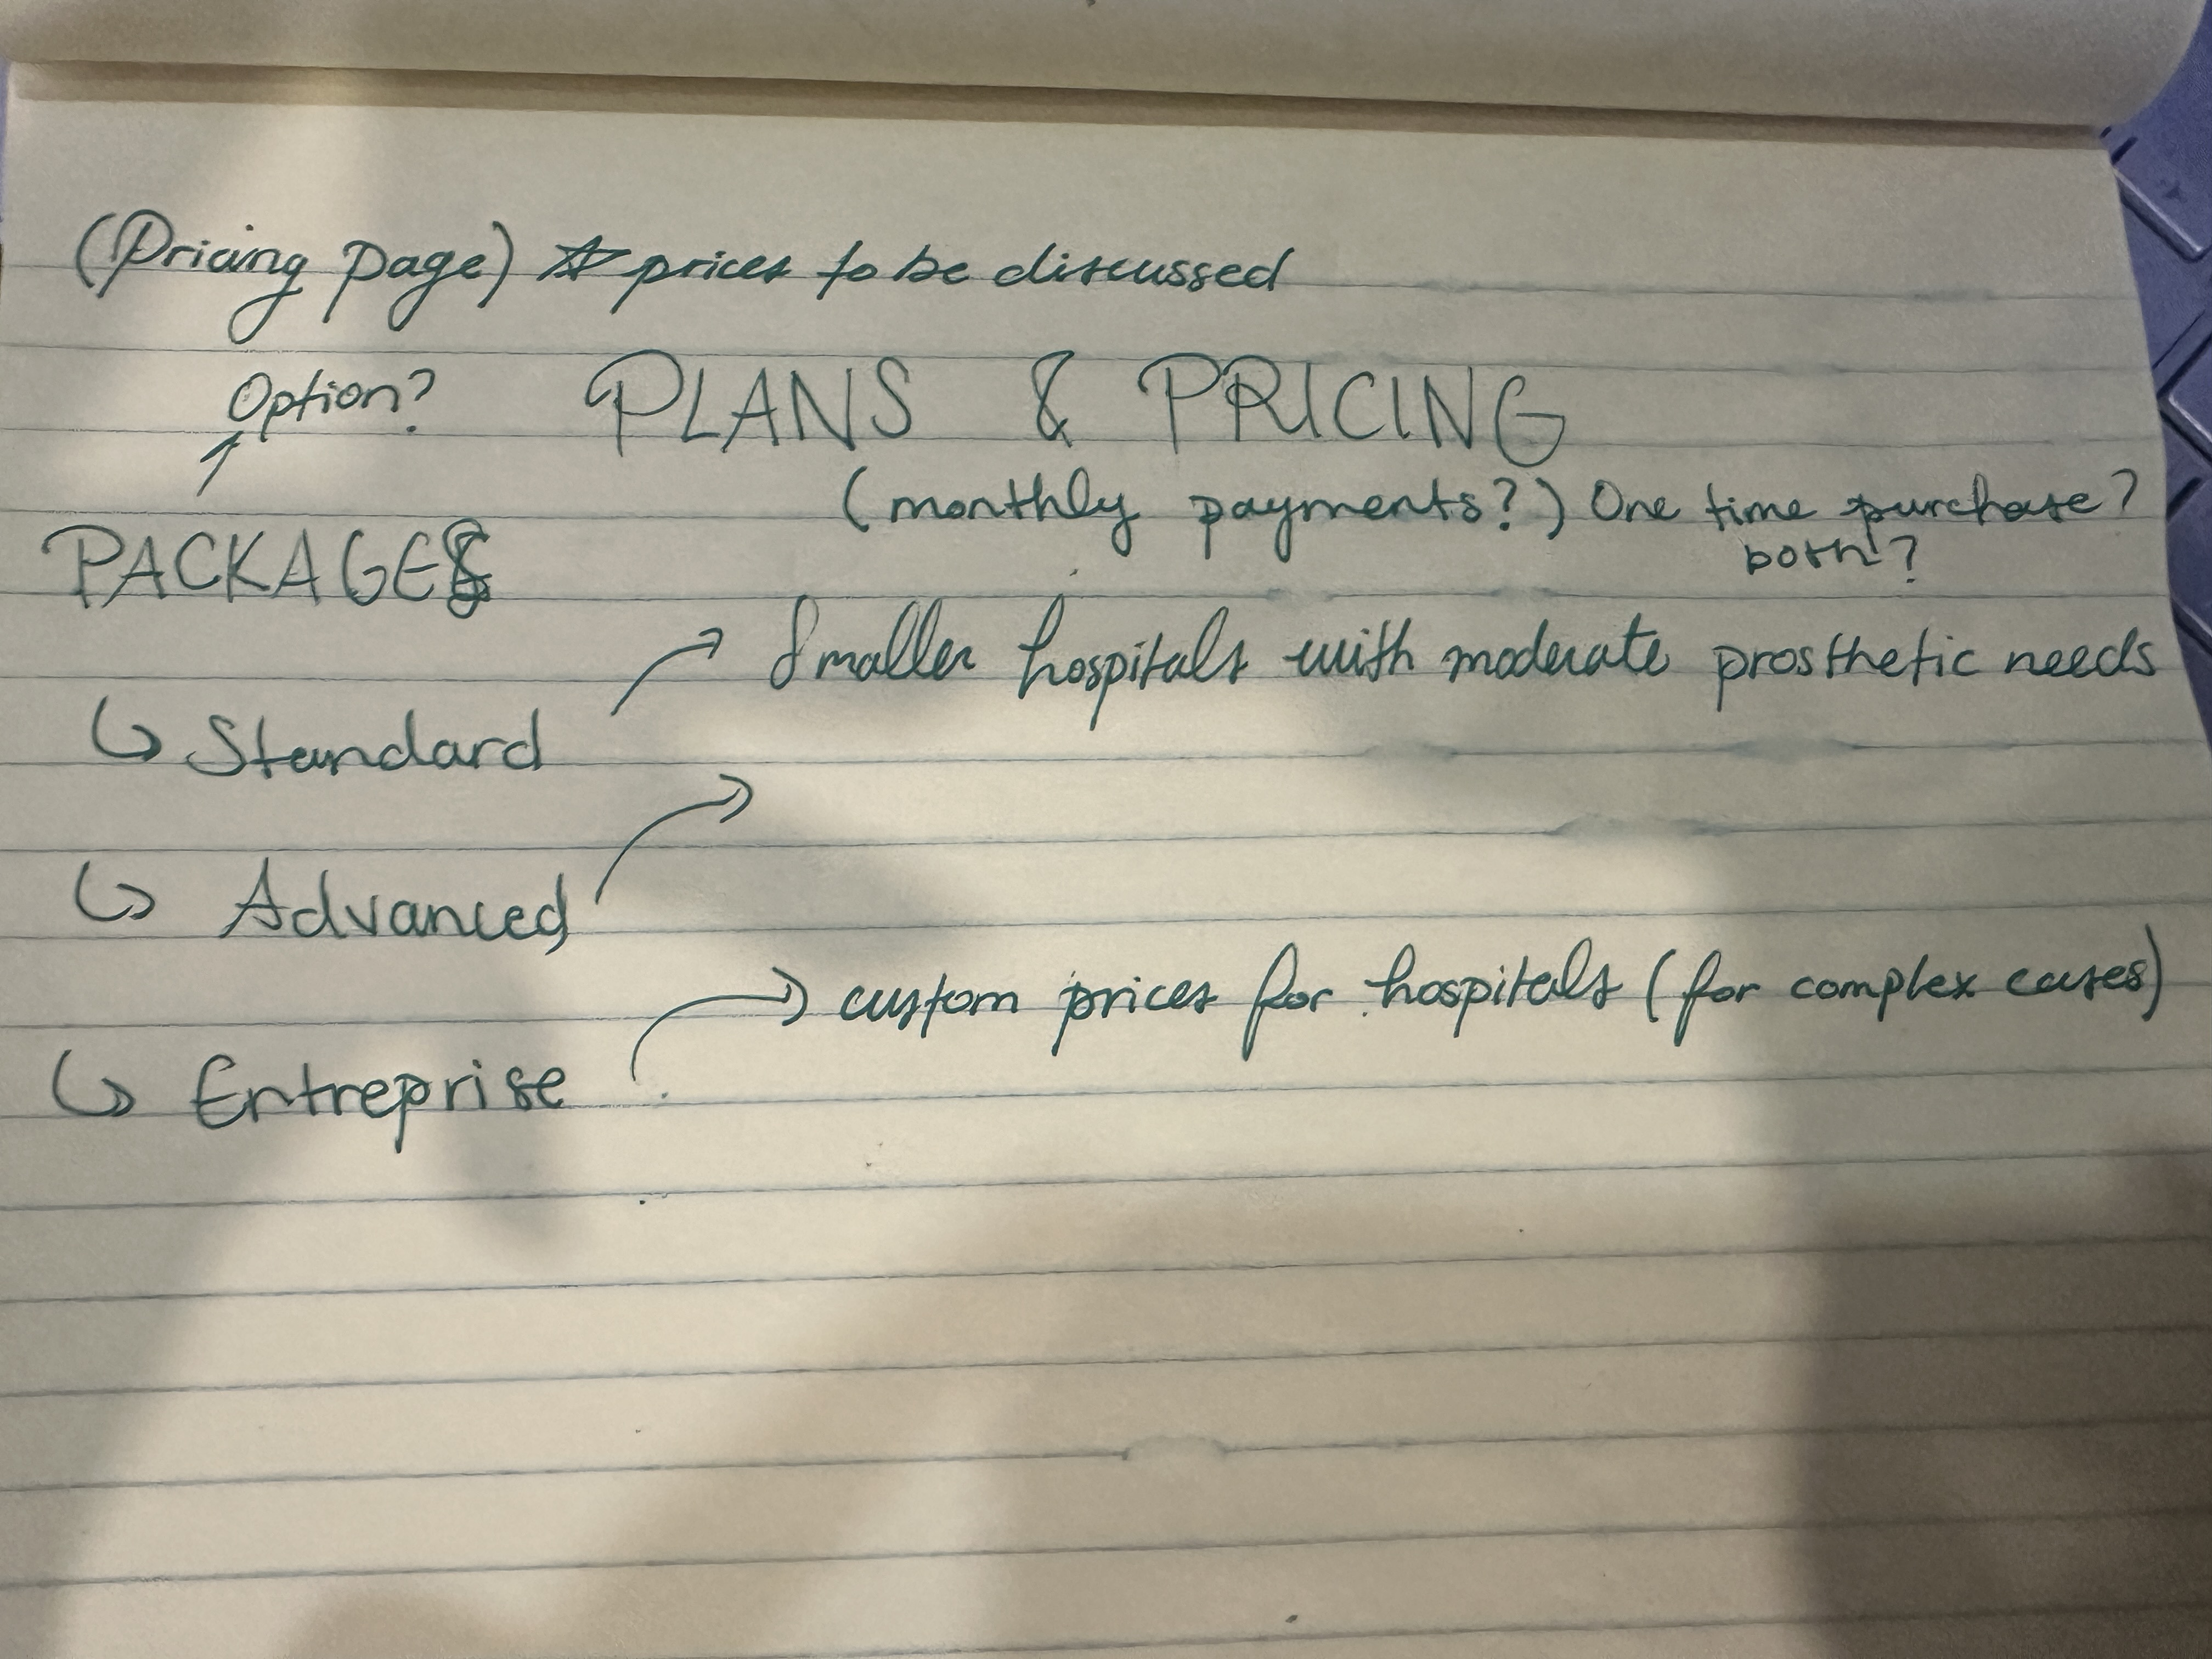 (Pricing Page) * prices to be discussed
Option? PLANS & PRICING
(monthly payments?) One time purchase?
both?
PACKAGES
↳ Standard → Smaller hospitals with moderate prosthetic needs
↳ Advanced →
↳ Entreprise → custom prices for hospitals (for complex cases)